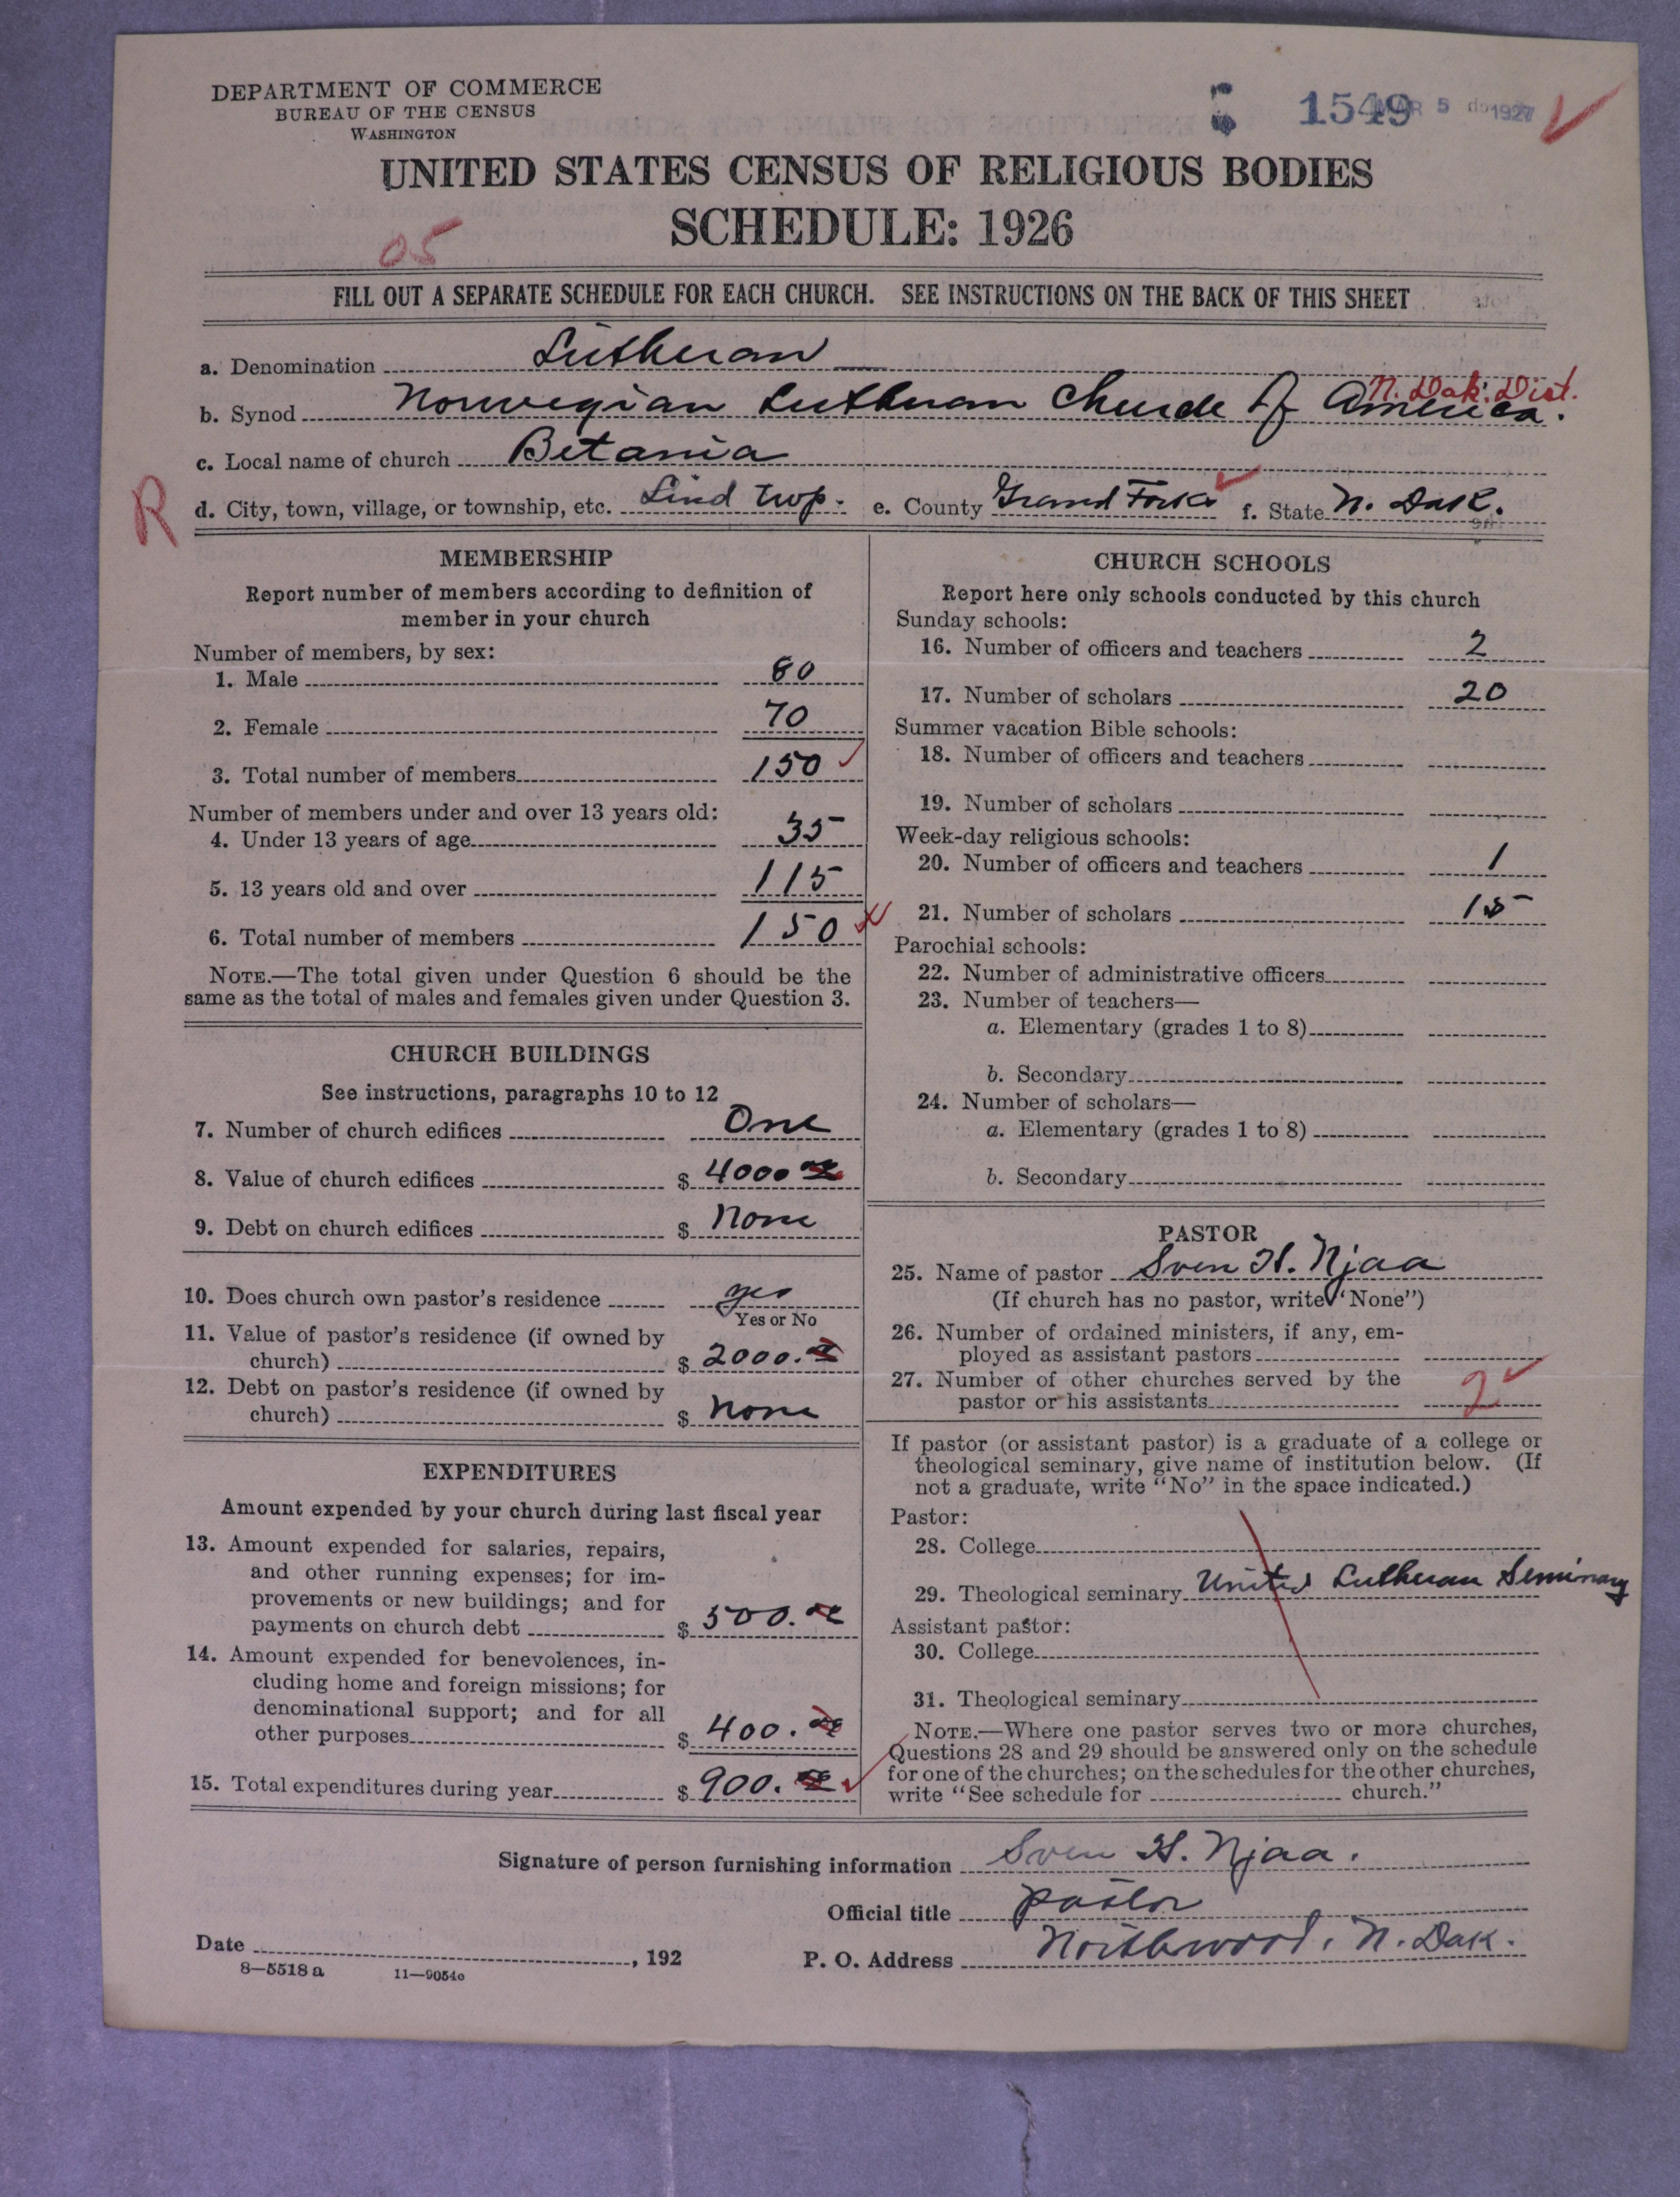 DEPARTMENT OF COMMERCE
BUREAU OF THE CENSUS
WASHINGTON
1549 MAR 5 1927
UNITED STATES CENSUS OF RELIGIOUS BODIES
SCHEDULE: 1926
05
FILL OUT A SEPARATE SCHEDULE FOR EACH CHURCH. SEE INSTRUCTIONS ON THE BACK OF THIS SHEET
a. Denomination Lutheran
N. Dak. Dist.
b. Synod Norwegian Lutheran Church of America.
c. Local name of church Betania
R
d. City, town, village, or township, etc. Lind twp. e. County Grand Forks f. State N. Dak.
MEMBERSHIP
Report number of members according to definition of
member in your church
Number of members, by sex:
1. Male 80
2. Female 70
3. Total number of members 150
Number of members under and over 13 years old:
4. Under 13 years of age 35
5. 13 years old and over 115
6. Total number of members 150
NOTE.—The total given under Question 6 should be the
same as the total of males and females given under Question 3.
CHURCH BUILDINGS
See instructions, paragraphs 10 to 12
7. Number of church edifices One
8. Value of church edifices $ 4000
9. Debt on church edifices $ None
10. Does church own pastor's residence yes
Yes or No
11. Value of pastor's residence (if owned by
church) $ 2000.
12. Debt on pastor's residence (if owned by
church) $ None
EXPENDITURES
Amount expended by your church during last fiscal year
13. Amount expended for salaries, repairs,
and other running expenses; for im-
provements or new buildings; and for
payments on church debt $ 500.
14. Amount expended for benevolences, in-
cluding home and foreign missions; for
denominational support; and for all
other purposes $ 400.
15. Total expenditures during year $ 900.
CHURCH SCHOOLS
Report here only schools conducted by this church
Sunday schools:
16. Number of officers and teachers 2
17. Number of scholars 20
Summer vacation Bible schools:
18. Number of officers and teachers
19. Number of scholars
Week-day religious schools:
20. Number of officers and teachers 1
21. Number of scholars 15
Parochial schools:
22. Number of administrative officers
23. Number of teachers—
a. Elementary (grades 1 to 8)
b. Secondary
24. Number of scholars—
a. Elementary (grades 1 to 8)
b. Secondary
PASTOR
25. Name of pastor Sven H. Njaa
(If church has no pastor, write "None")
26. Number of ordained ministers, if any, em-
ployed as assistant pastors
27. Number of other churches served by the
pastor or his assistants 2
If pastor (or assistant pastor) is a graduate of a college or
theological seminary, give name of institution below. (If
not a graduate, write "No" in the space indicated.)
Pastor:
28. College
29. Theological seminary United Lutheran Seminary
Assistant pastor:
30. College
31. Theological seminary
NOTE.—Where one pastor serves two or more churches,
Questions 28 and 29 should be answered only on the schedule
for one of the churches; on the schedules for the other churches,
write "See schedule for church."
Signature of person furnishing information Sven H. Njaa.
Official title pastor
Date , 192
P. O. Address Northwood, N. Dak.
8—5518 a 11—9054c